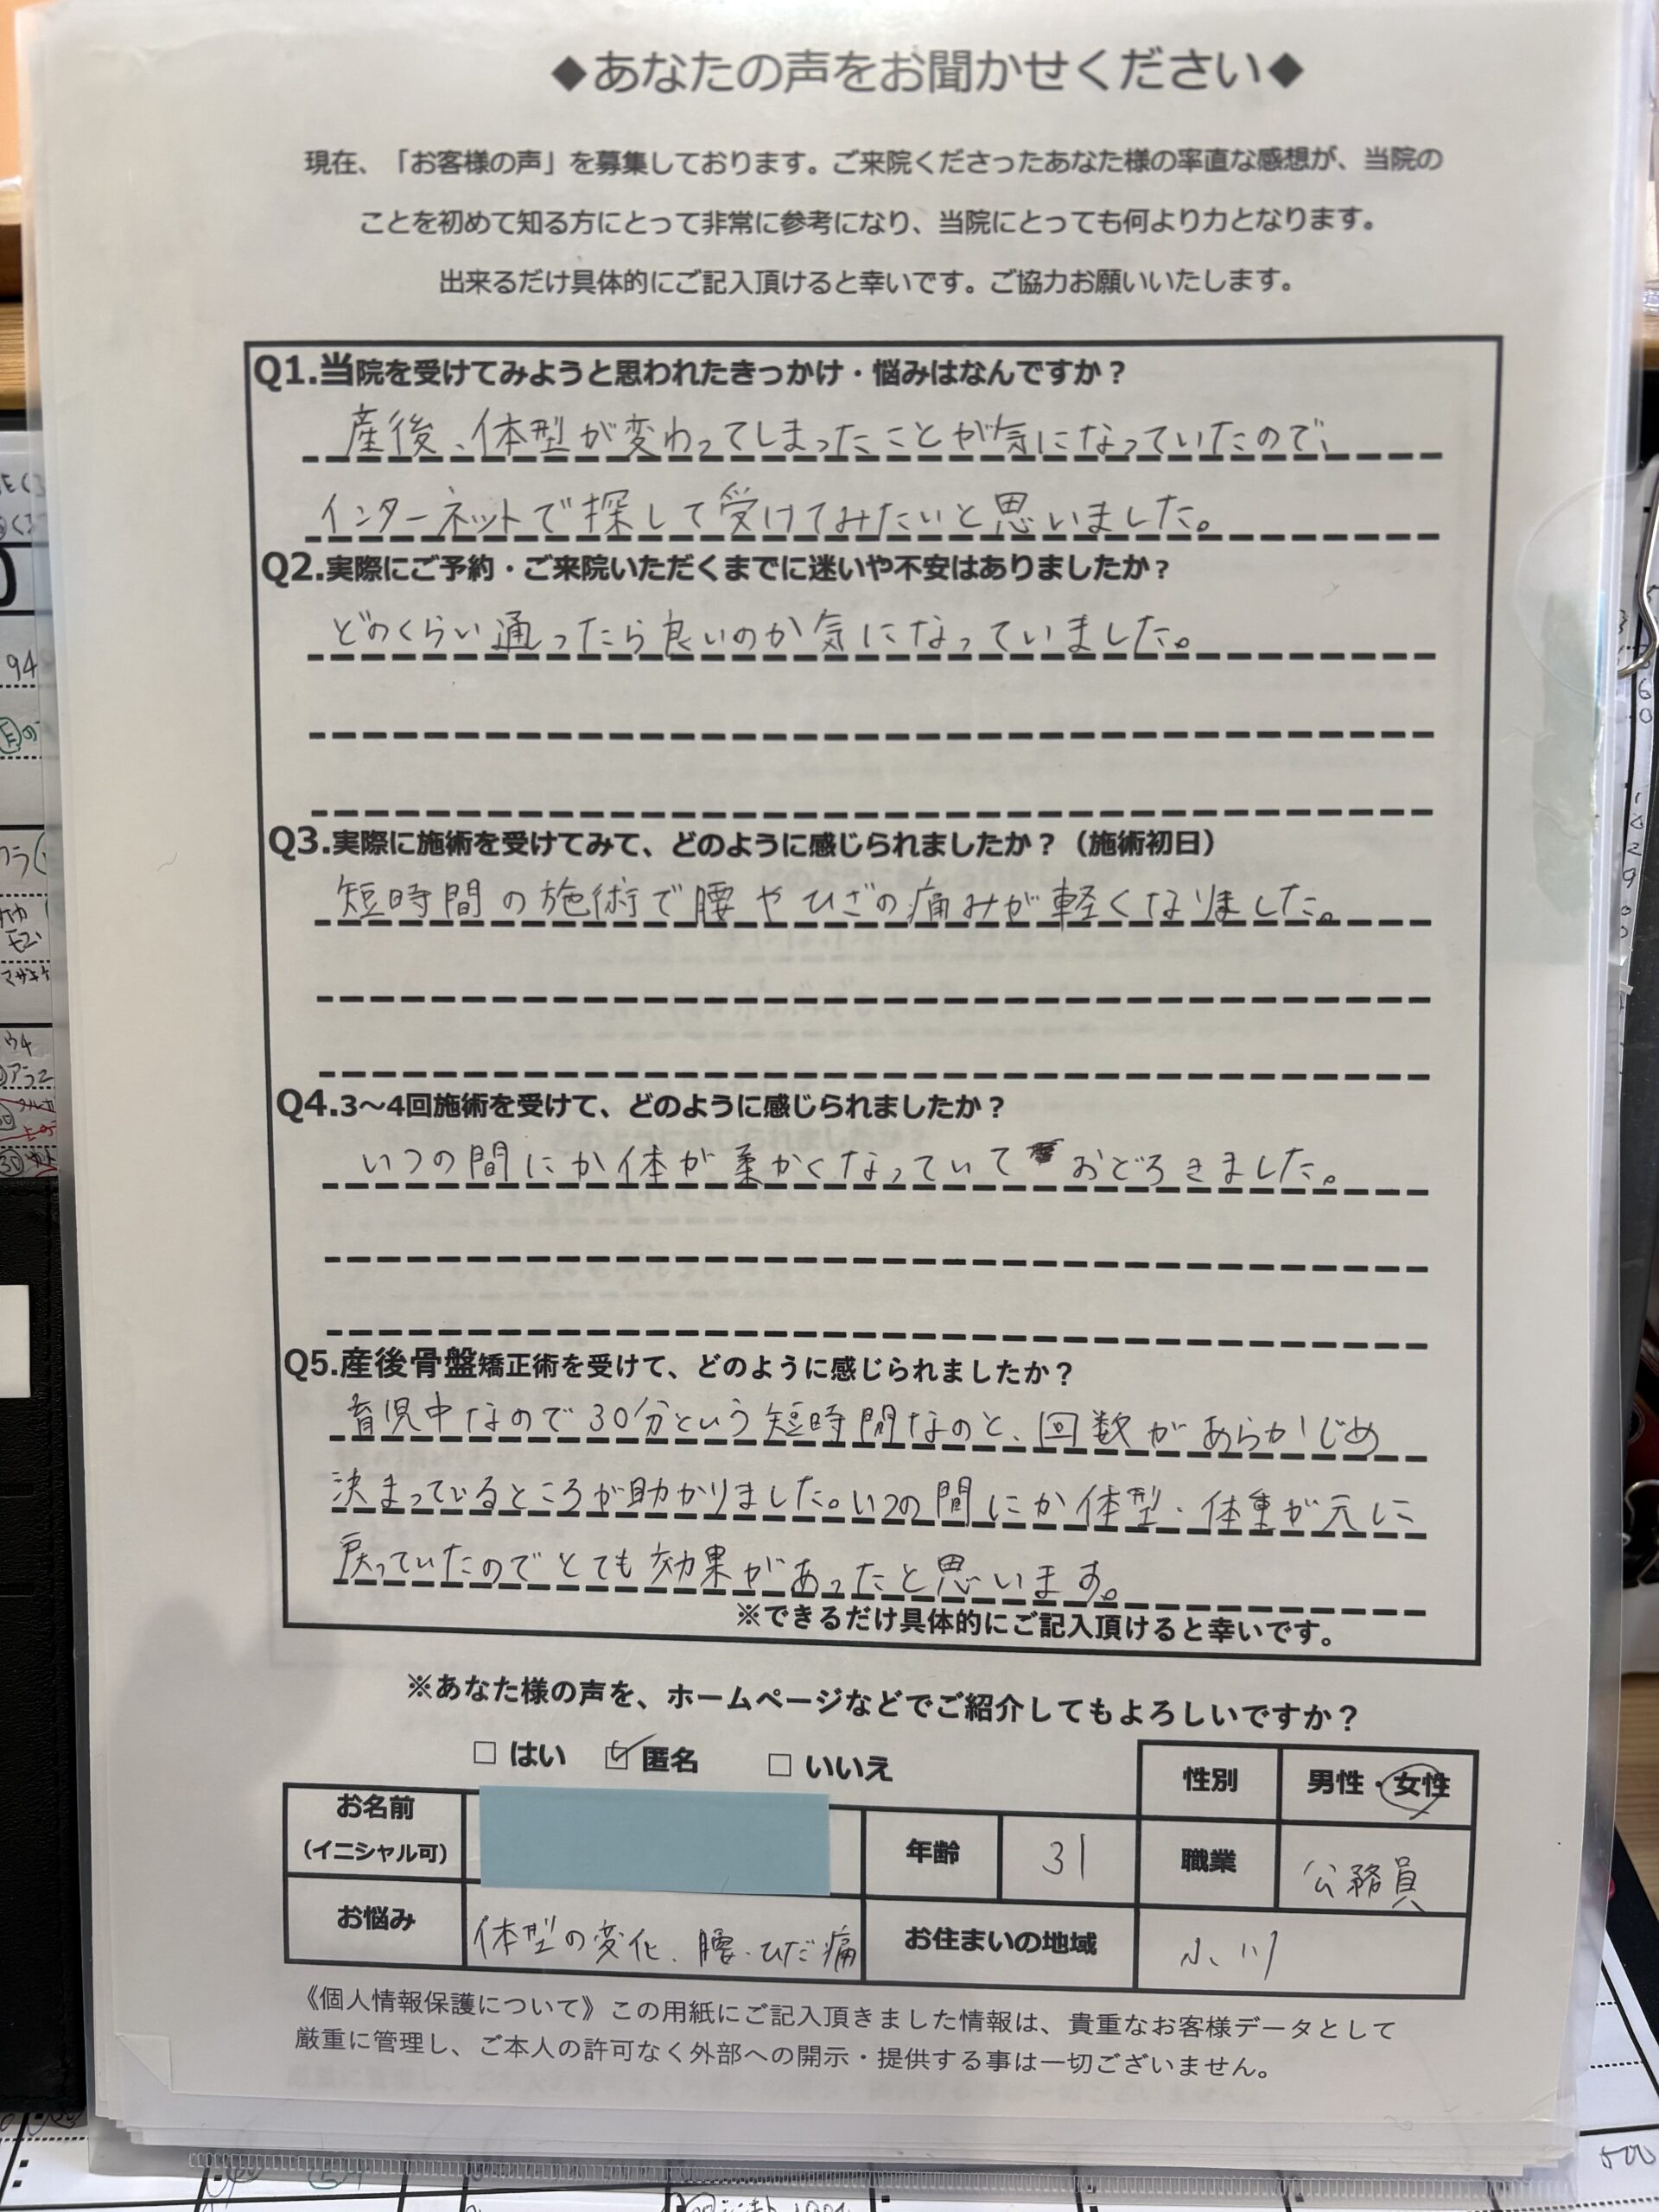 ◆あなたの声をお聞かせください◆
現在、「お客様の声」を募集しております。ご来院くださったあなた様の率直な感想が、当院の
ことを初めて知る方にとって非常に参考になり、当院にとっても何より力となります。
出来るだけ具体的にご記入頂けると幸いです。ご協力お願いいたします。
Q1.当院を受けてみようと思われたきっかけ・悩みはなんですか？
産後、体型が変わってしまったことが気になっていたので、
インターネットで探して受けてみたいと思いました。
Q2.実際にご予約・ご来院いただくまでに迷いや不安はありましたか？
どのくらい通ったら良いのか気になっていました。
Q3.実際に施術を受けてみて、どのように感じられましたか？（施術初日）
短時間の施術で腰やひざの痛みが軽くなりました。
Q4.3～4回施術を受けて、どのように感じられましたか？
いつの間にか体が柔かくなっていておどろきました。
Q5.産後骨盤矯正術を受けて、どのように感じられましたか？
育児中なので30分という短時間なのと、回数があらかじめ
決まっているところが助かりました。いつの間にか体型・体重が元に
戻っていたのでとても効果があったと思います。
※できるだけ具体的にご記入頂けると幸いです。
※あなた様の声を、ホームページなどでご紹介してもよろしいですか？
□ はい ☑ 匿名 □ いいえ
性別 男性・女性
お名前
（イニシャル可）
年齢 31 職業 公務員
お悩み 体型の変化、腰・ひざ痛 お住まいの地域 小川
《個人情報保護について》この用紙にご記入頂きました情報は、貴重なお客様データとして
厳重に管理し、ご本人の許可なく外部への開示・提供する事は一切ございません。
94
500